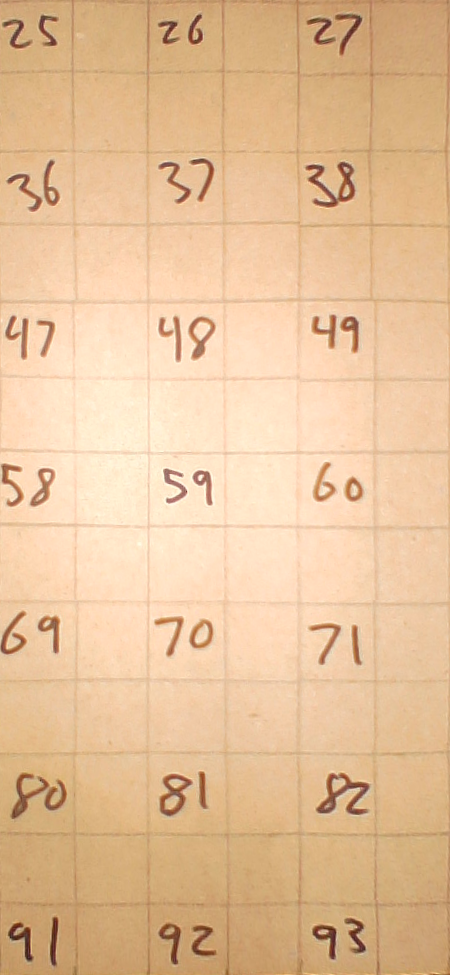 25 26 27
36 37 38
47 48 49
58 59 60
69 70 71
80 81 82
91 92 93